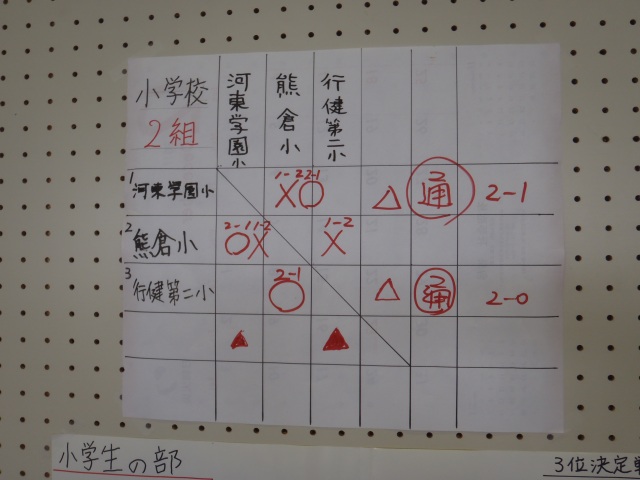 小学校
2組
河東学園小
熊倉小
行健第二小
1 河東学園小 1-2 2-1 X○ △ 通 2-1
2 熊倉小 2-1 1-2 ○X 1-2 X
3 行健第二小 2-1 ○ △ 通 2-0
▲ ▲
小学生の部
3位決定戦